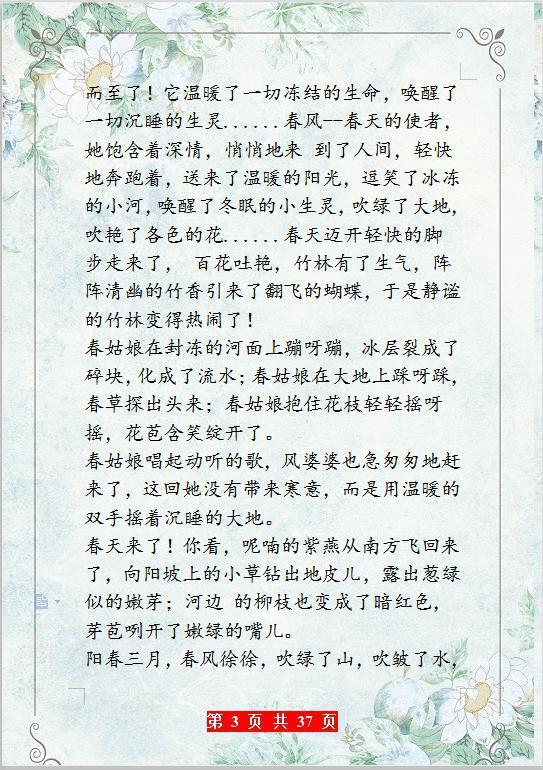 而至了！它温暖了一切冻结的生命，唤醒了
一切沉睡的生灵......春风--春天的使者，
她饱含着深情，悄悄地来 到了人间，轻快
地奔跑着，送来了温暖的阳光，逗笑了冰冻
的小河，唤醒了冬眠的小生灵，吹绿了大地，
吹艳了各色的花......春天迈开轻快的脚
步走来了， 百花吐艳，竹林有了生气，阵
阵清幽的竹香引来了翻飞的蝴蝶，于是静谧
的竹林变得热闹了！
春姑娘在封冻的河面上蹦呀蹦，冰层裂成了
碎块，化成了流水；春姑娘在大地上踩呀踩，
春草探出头来；春姑娘抱住花枝轻轻摇呀
摇，花苞含笑绽开了。
春姑娘唱起动听的歌，风婆婆也急匆匆地赶
来了，这回她没有带来寒意，而是用温暖的
双手摇着沉睡的大地。
春天来了！你看，呢喃的紫燕从南方飞回来
了，向阳坡上的小草钻出地皮儿，露出葱绿
似的嫩芽；河边 的柳枝也变成了暗红色，
芽苞咧开了嫩绿的嘴儿。
阳春三月，春风徐徐，吹绿了山，吹皱了水，
第 3 页 共 37 页